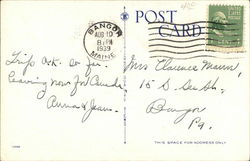 POST CARD
BANGOR
AUG 10
8 PM
1939
MAINE
Trip O.K. so far.
Leaving now for Canada
Anna & Jean.
Mrs Clarence
15 S.
Bangor
Pa.
THIS SPACE FOR ADDRESS ONLY